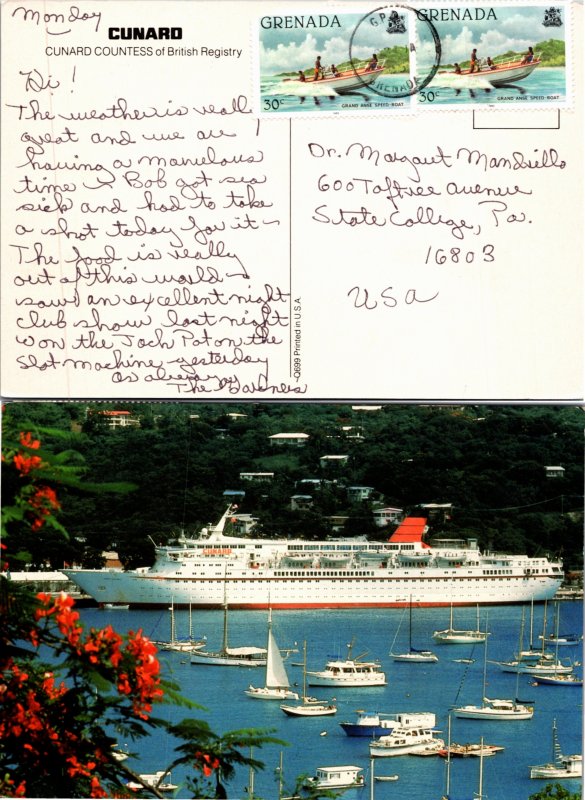 Monday
CUNARD
CUNARD COUNTESS of British Registry
Hi!
The weather is really
great and we are
having a marvelous
time - Bob got sea
sick and had to take
a shot today for it -
The food is really
out of this world -
saw an excellent night
club show last night
won the Jack Pot on the
slot machine yesterday
As always
The
Q699 Printed in U.S.A.
GRENADA
30c
GRAND ANSE SPEED BOAT
GRENADA
30c
GRAND ANSE SPEED BOAT
G.P.O.
GRENADA
Dr. Margaret Mandrillo
600 Toftree Avenue
State College, Pa.
16803
USA
CUNARD